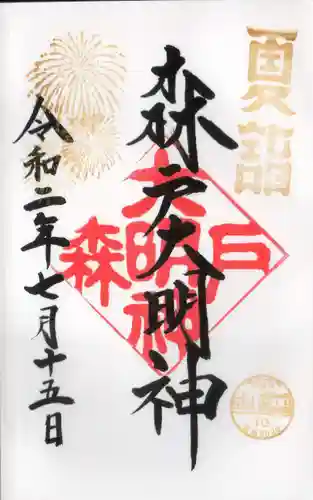 夏詣
森戸大明神
森戸大明神
令和二年七月十五日